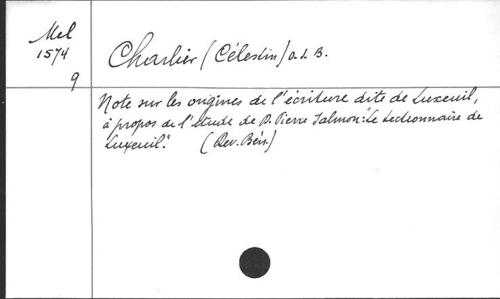 Mel
1574
9
Charlier (Célestin) o.s.B.
Note sur les origines de l'écriture dite de Luxeuil,
à propos de l'étude de D. Pierre Salmon: "Le Lectionnaire de
Luxeuil". (Rev. Bén.)